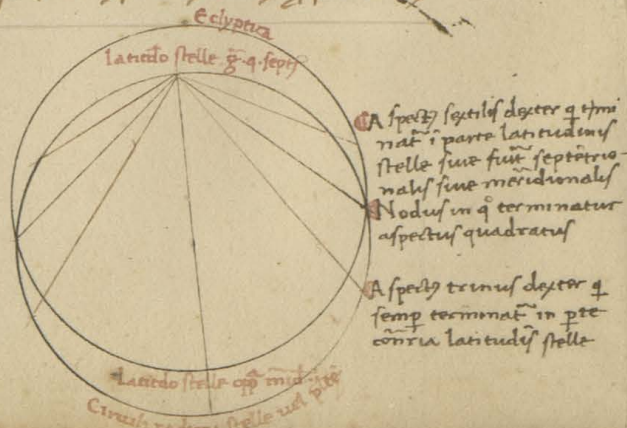 Eclyptica
latitudo stelle g̃. 4. septꝫ
Aspectꝰ sextilis dexter q̃ t̃mi
nat̃ ĩ parte latitudinis
stelle siue fuit̃ septẽtrio-
nalis siue meridionalis
Nodus in q̊ terminatur
aspectus quadratus
Aspectꝰ trinus dexter q̃
semꝑ terminat̃ in ꝑte
cõtr̃ria latitudĩs stelle
latitudo stelle opp̃
stelle uel